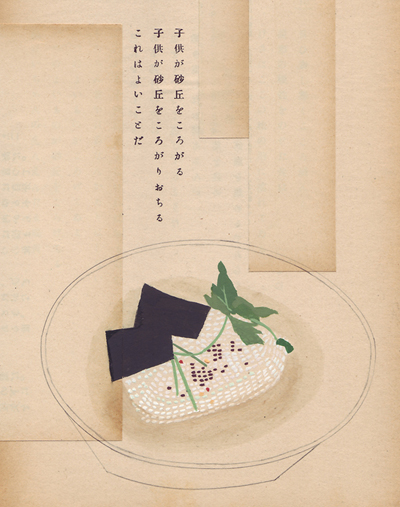 子供が砂丘をころがる
子供が砂丘をころがりおちる
これはよいことだ